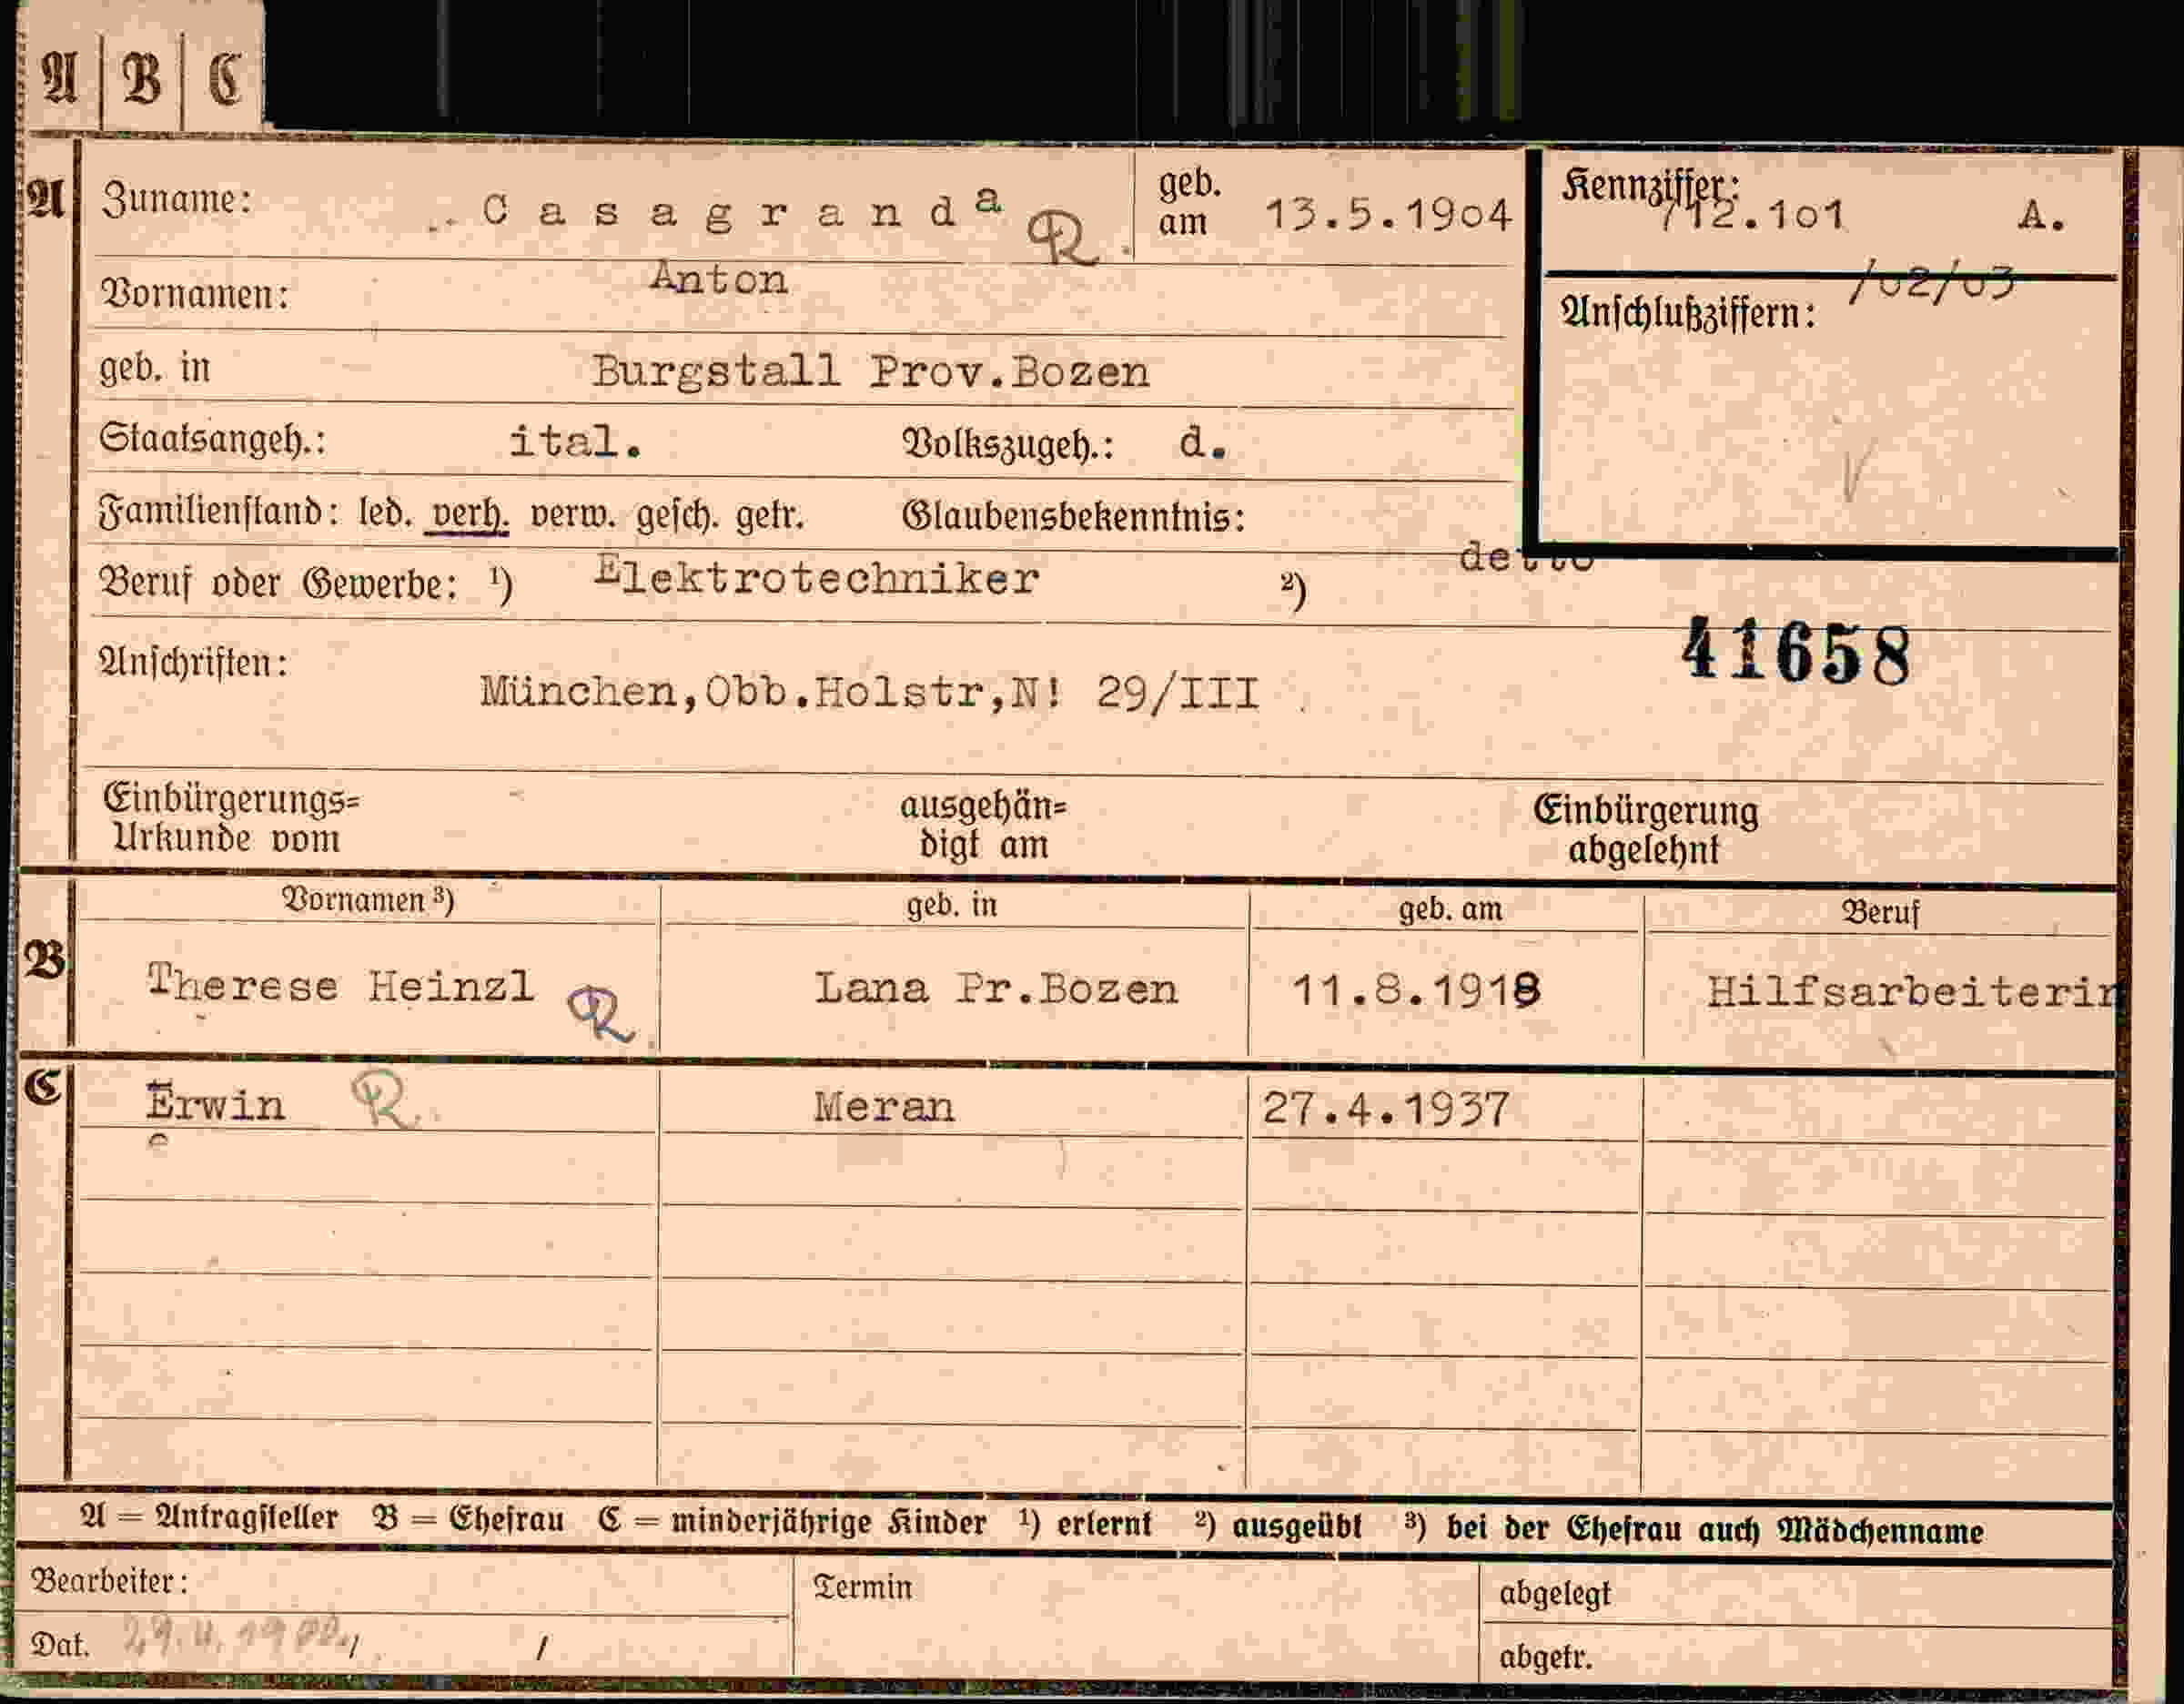 A B C
A Zuname: Casagranda R. geb. am 13.5.1904
Kennziffer: /12.101 A.
/02/03
Vornamen: Anton
Anschlußziffern:
geb. in Burgstall Prov.Bozen
Staatsangeh.: ital. Volkszugeh.: d.
Familienstand: led. verh. verw. gesch. getr. Glaubensbekenntnis:
Beruf oder Gewerbe: ¹) Elektrotechniker ²) detto
41658
Anschriften: München,Obb.Holstr,N! 29/III
Einbürgerungs= Urkunde vom ausgehän= digt am Einbürgerung abgelehnt
Vornamen ³) geb. in geb. am Beruf
B Therese Heinzl R. Lana Pr.Bozen 11.8.1918 Hilfsarbeiterin
C Erwin R. Meran 27.4.1937
A = Antragsteller B = Ehefrau C = minderjährige Kinder ¹) erlernt ²) ausgeübt ³) bei der Ehefrau auch Mädchenname
Bearbeiter: Termin abgelegt
Dat. / / abgetr.